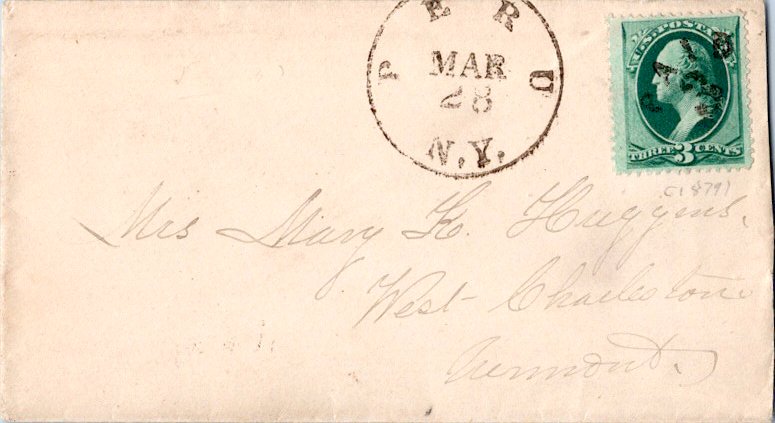 PERU
MAR
28
N.Y.
U.S. POSTAGE
PAID
THREE 3 CENTS
Mrs Mary K. Huggins.
West Charleston
Vermont.